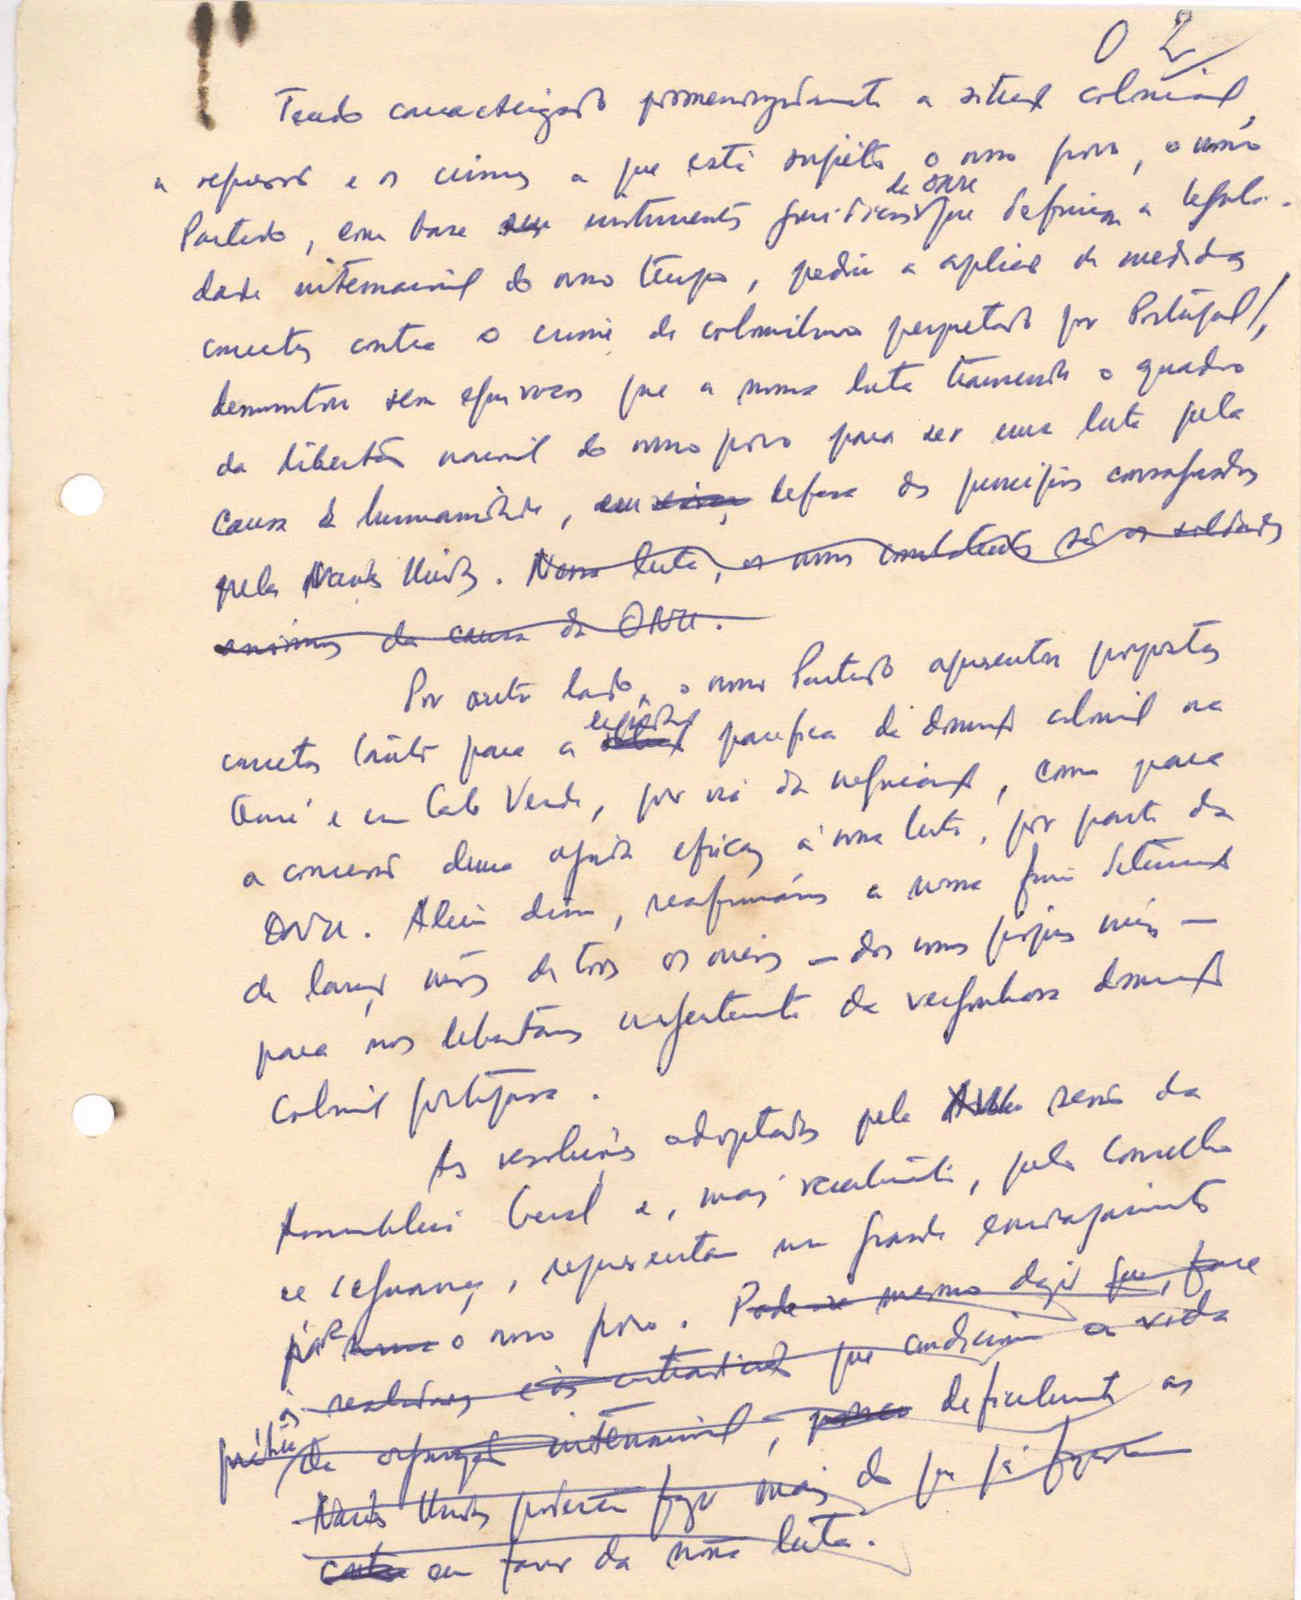 02
Tendo caracterizado pormenorizadamente a situação colonial,
a repressão e os crimes a que está sujeito o nosso povo, o nosso
Partido, com base nos instrumentos jurídicos de base que definem a legali-
dade internacional do nosso tempo, pediu a aplicação de medidas
concretas contra o crime de colonialismo perpetrado por Portugal,
demonstrou sem equívocos que a nossa luta transcende o quadro
da libertação nacional do nosso povo para ser uma luta pela
causa da humanidade, em defesa dos princípios consagrados
pelas Nações Unidas. Nessa luta, os nossos combatentes são os soldados
anónimos da causa da ONU.
Por outro lado, o nosso Partido apresentou propostas
concretas tanto para a liquidação pacífica da dominação colonial na
Guiné e em Cabo Verde, por via da negociação, como para
a concessão duma ajuda eficaz à nossa luta, por parte da
ONU. Além disso, reafirmámos a nossa firme determinação
de lançar mãos de todos os meios — dos nossos próprios meios —
para nos libertarmos urgentemente da vergonhosa dominação
colonial portuguesa.
As resoluções adoptadas pela sessão da
Assembleia Geral e, mais recentemente, pelo Conselho
de Segurança, representam um grande encorajamento
para o nosso povo. Pode-se mesmo dizer que, face
às realidades e às contradições que condicionam a vida
prática da organização internacional, dificilmente as
Nações Unidas poderão fazer mais do que já fizeram
em favor da nossa luta.